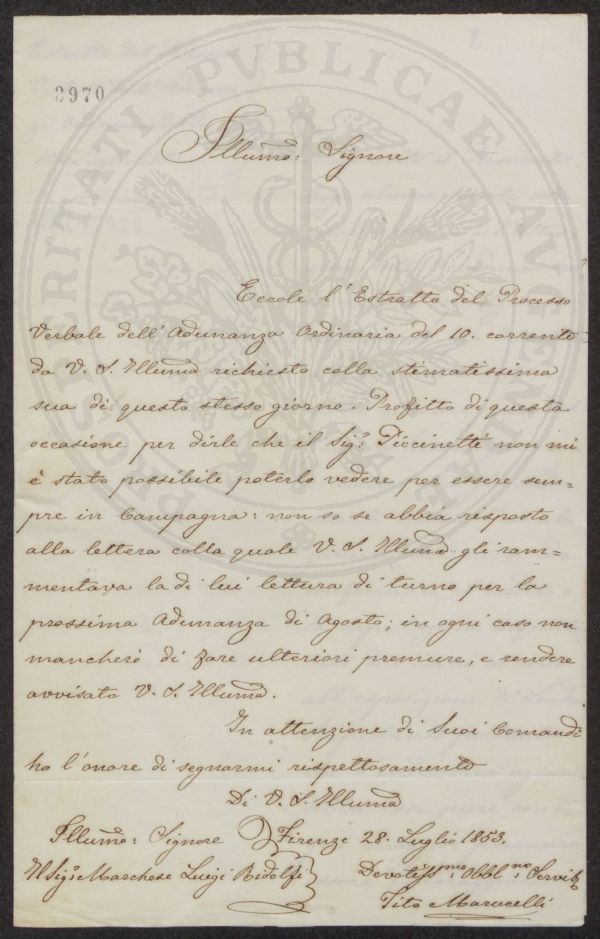 2970
PROSPERITATI PVBLICAE AVGENDAE
Illumo: Signore
Eccole l'Estratto del Processo
Verbale dell'Adunanza Ordinaria del 10. corrente
da V. S. Illuma richiesto colla stimatissima
sua di questo stesso giorno. Profitto di questa
occasione per dirle che il Sigr Piccinetti non mi
è stato possibile poterlo vedere per essere sem=
pre in Campagna: non so se abbia risposto
alla lettera colla quale V. S. Illuma gli ram=
mentava la di lui lettura di turno per la
prossima Adunanza di Agosto; in ogni caso non
mancherò di fare ulteriori premure, e rendere
avvisato V. S. Illuma.
In attenzione di Suoi Comandi
ho l'onore di segnarmi rispettosamente
Di V. S. Illuma
Illumo: Signore
Firenze 28. Luglio 1853.
Il Sigr Marchese Luigi Ridolfi
Devotissmo: Obblno: Servit
Tito Marucelli